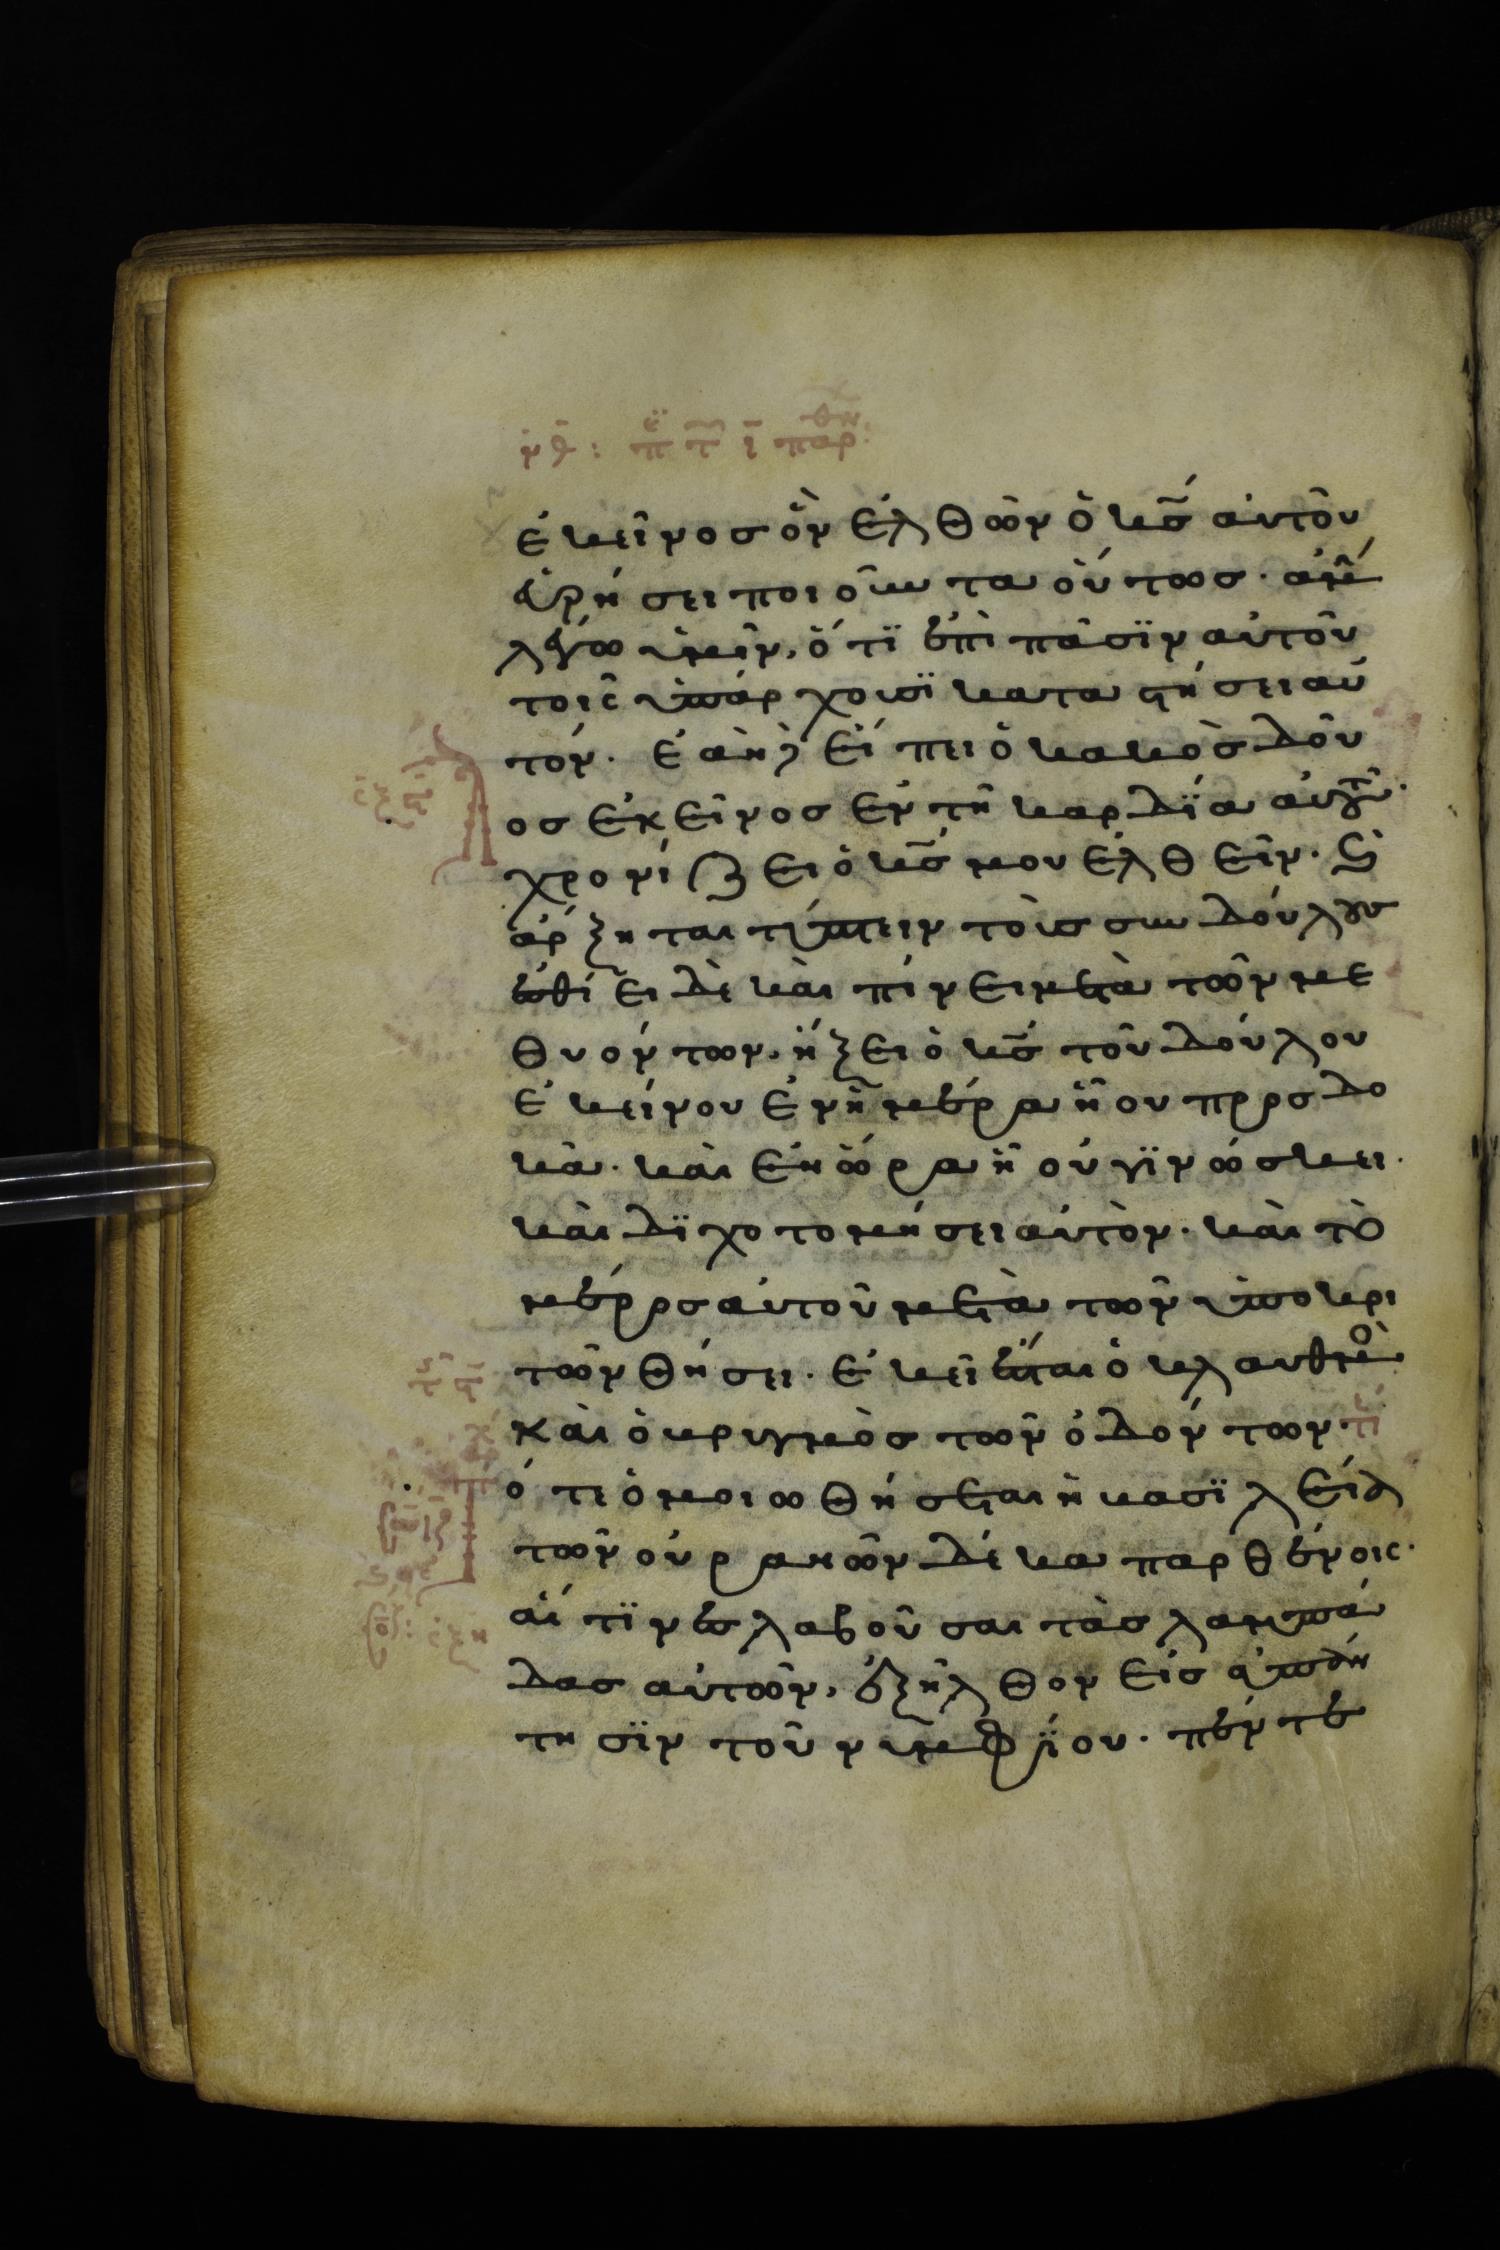 νθ: περὶ τῶν ι παρθένων:
ἐκεῖνος ὃν ἐλθὼν ὁ κ̅σ̅ αὐτοῦ
εὑρήσει ποιοῦντα οὕτως. ἀμὴ
λέγω ὑμῖν, ὅτϊ ἐπὶ πᾶσϊν αὐτοῦ
τοῖς ὑπάρχουσϊ καταστήσει αὐ
τόν. ἐὰν δὲ εἴπει ὁ κακὸς δοῦ
ος ἐκεῖνος ἐν τῆ καρδΐα αὐτοῦ.
χρονίζει ὁ κ̅σ̅ μου ἐλθεῖν. καὶ
ἄρξηται τύπτειν τοὺς συνδούλους
ἐσθίει δὲ καὶ πίνει μετὰ τῶν με
θυόντων. ἥξει ὁ κ̅σ̅ τοῦ δούλου
ἐκείνου ἐν ἡμέρα ἧ ου προσδο
κᾶ. καὶ ἐν ὥρα ἧ οὐ γϊνώσκει.
καὶ δϊχοτομήσει αὐτὸν. καὶ τὸ
μέρος αὐτοῦ μετὰ τῶν ὑποκρι
τῶν θήσει. ἐκεῖ ἔσται ὁ κλαυθμὸ
καὶ ὁ βρυγμὸς τῶν ὀδόντων. τέ
ότι ὁμοιωθήσεται ἡ βασϊλεία
τῶν οὐρανῶν δέκα παρθένοις.
αἵτϊνες λαβοῦσαι τὰς λαμπά
δας αὐτῶν, ἐξῆλθον εἰς ἀπάν
τησϊν τοῦ νυμφΐου. πέντε